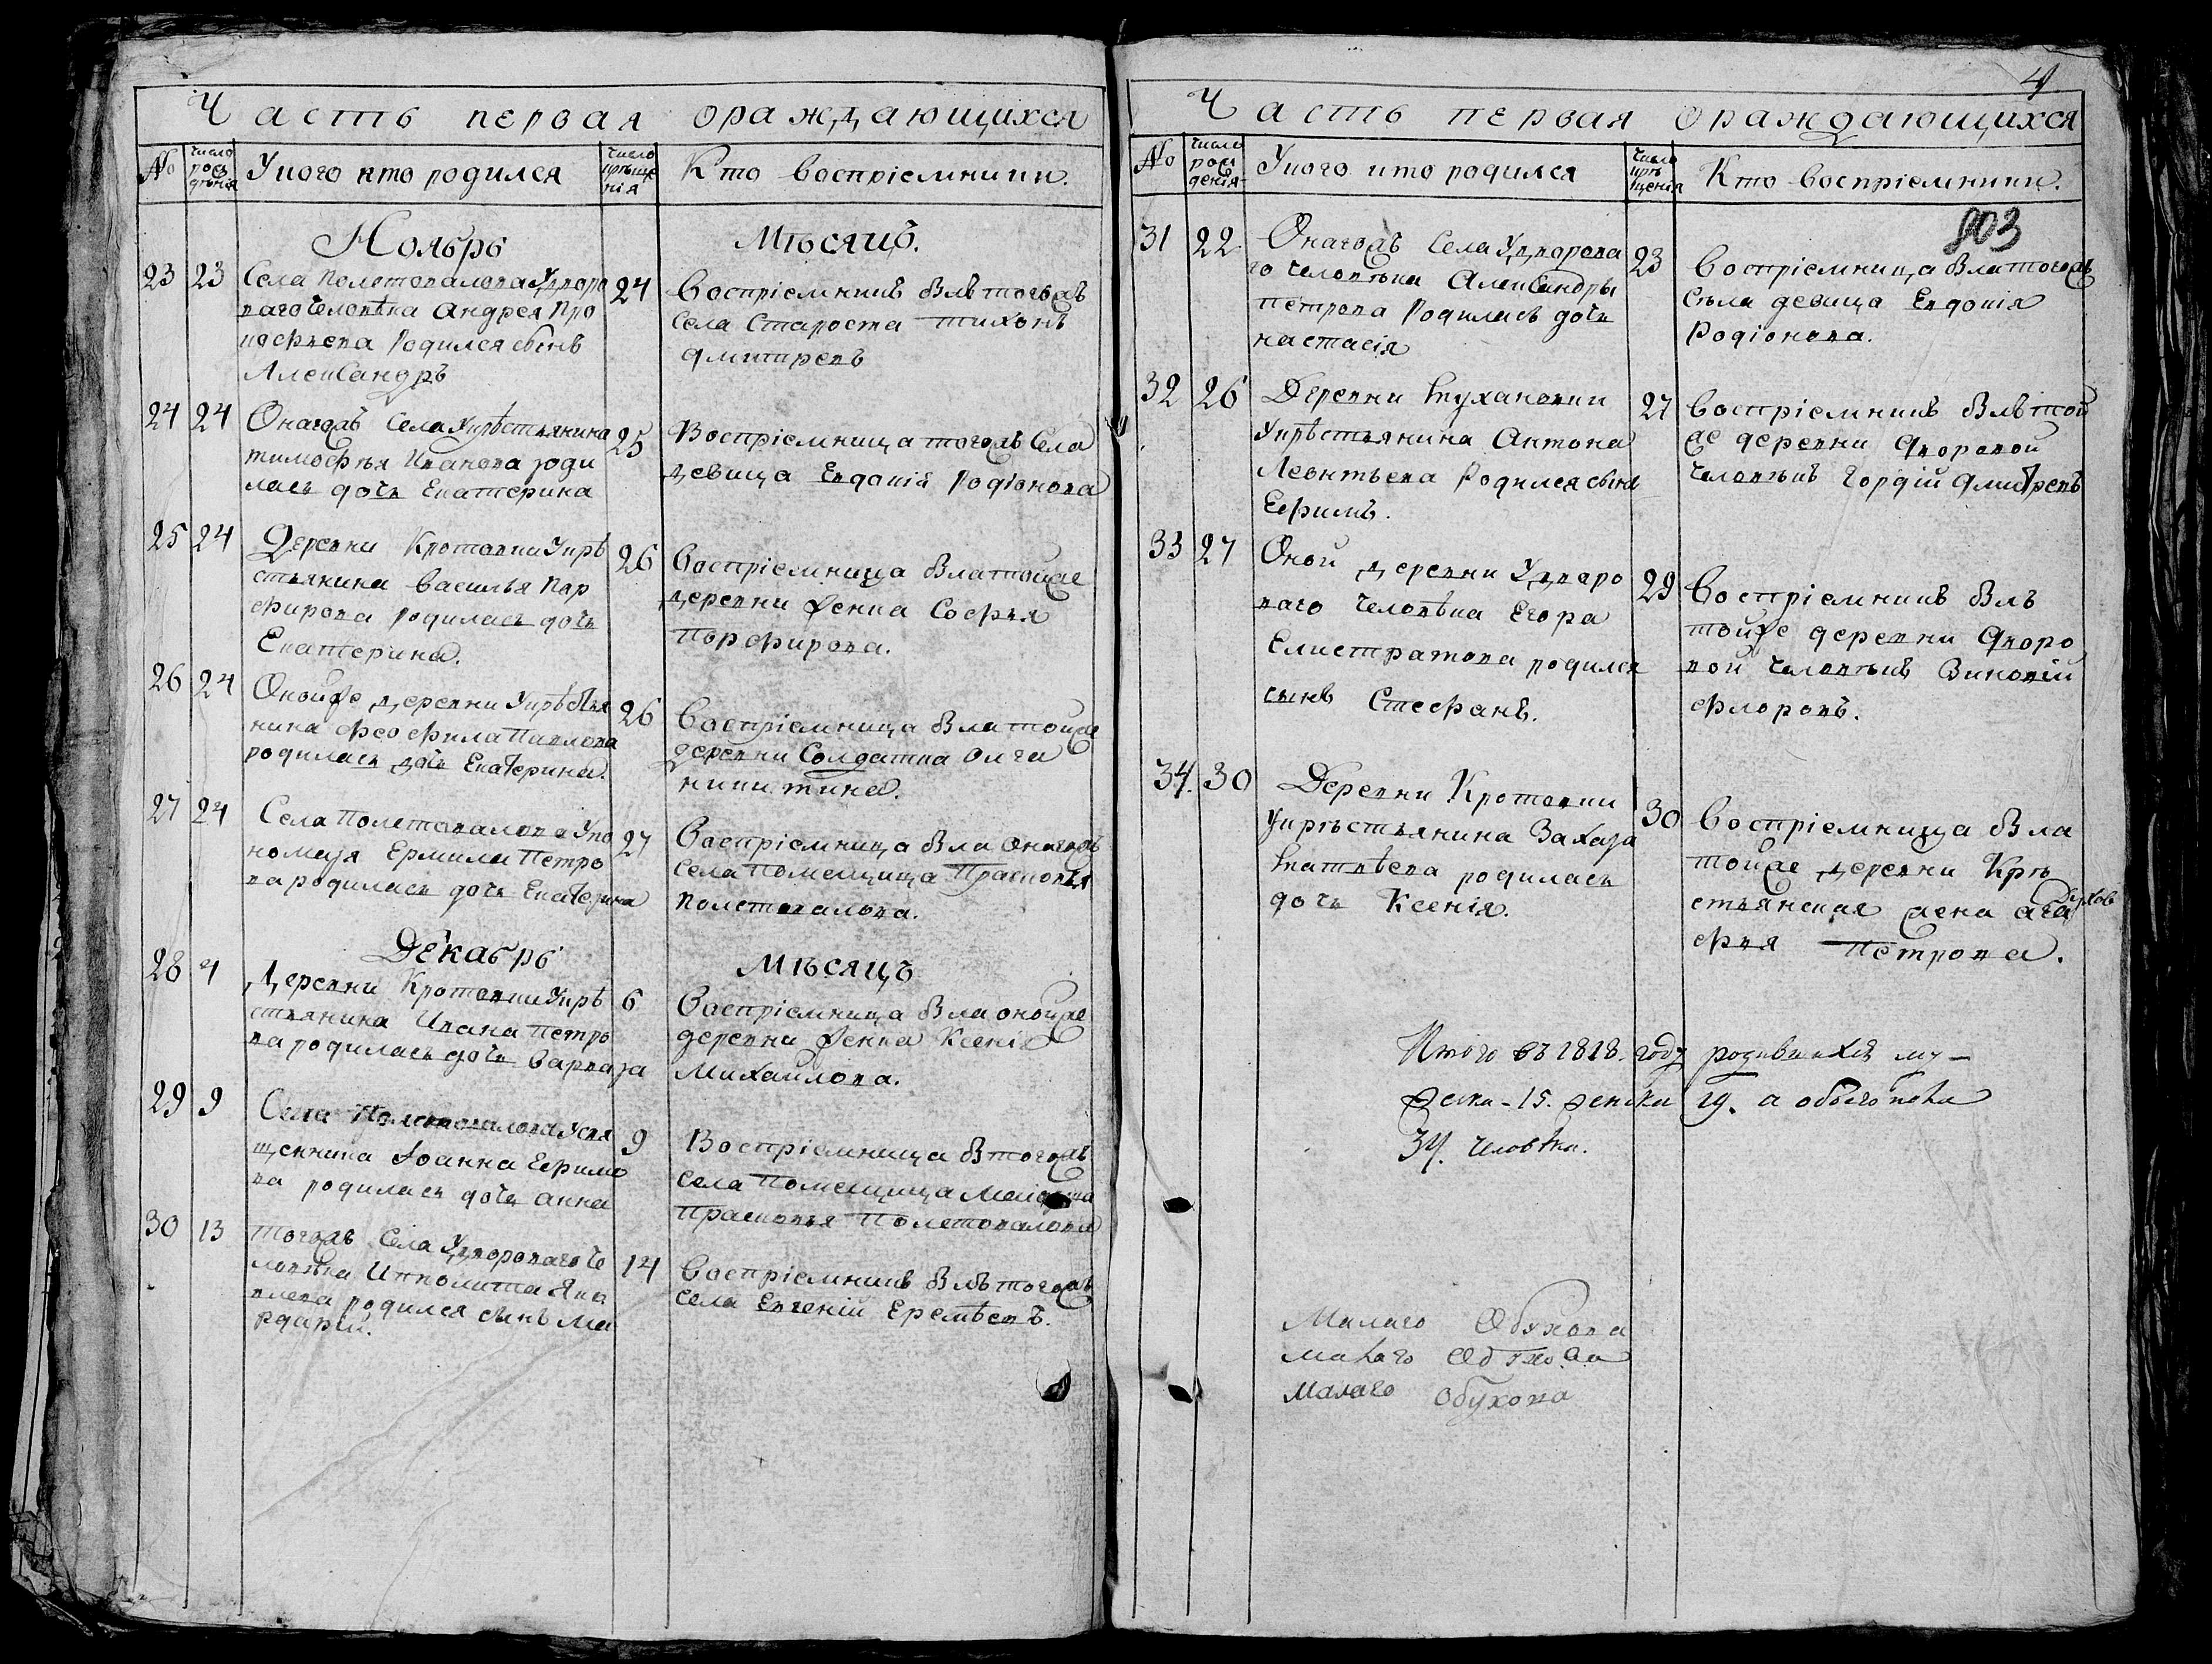 Часть первая ораждающихся
№
Число рождѣнія
Укого кто родился
Число крѣщенія
Кто воспріемники.
Ноябрь
Мѣсяцъ.
23 23
Села Полетовалова Удворо
ваго Человѣка Андрея Про
кофьева Родился сынъ
Александръ
24
Воспріемникъ Былъ тогожъ
Села Староста Тихонъ
Дмитревъ
24 24
Онагожъ Села Укрѣстьянина
тимофѣя Иванова роди
лась дочь Екатерина
25
Воспріемница тогожъ Села
девица Евдокія Родіонова
25 24
Деревни Кротовки Укрѣ
стьянина Василья Пар
фирова родилась дочь
Екатерина.
26
Воспріемница Была тойже
деревни Женка Софья
Порфирова.
26 24
Онойже деревни Укрѣстья
нина Феофила Павлова
родилась дочь Екатерина.
26
Воспріемница Была тойже
деревни Солдатка Олга
никитина.
27 24
Села Полетовалова Упо
номаря Ермила Петро
ва родилась дочь Екатерина
27
Воспріемница Была Онагожъ
Села Помещица Прасковья
Полетовалова.
Декабрь
Мѣсяцъ
28 4
Деревни Кротовки Укрѣ
стьянина Ивана Петро
ва родилась дочь Варвара
6
Воспріемница Была онойже
деревни Женка Ксенія
Михайлова.
29 9
Села Полетовалова Усвя
щенника Іоанна Ефимо
ва родилась дочь анна
9
Воспріемница Б тогожъ
Села Помещица
Прасковья Полетовалова
30 13
Тогожъ Села Удвороваго Че
ловѣка Ипполита Яко
влева родился сынъ Ма
рдарій.
14
Воспріемникъ Былъ тогожъ
Села Евгеній Еремѣевъ.
4
Часть первая ораждающихся
№
Число рожденія
Укого кто родился
Число крѣщенія
Кто воспріемники.
803
31 22
Онагожъ Села Удворова
го человѣка Александры
петрова Родилась дочь
настасія
23
Воспріемница Была тогожъ
Села девица Евдокія
Родіонова.
32 26
Деревни
Укрѣстьянина Антона
Леонтьева Родился сынъ
Ефимъ.
27
Воспріемникъ Былъ той
же деревни Дворовой
Человѣкъ Гордій Дмитревъ
33 27
Оной деревни Удворо
ваго Человѣка Егора
Елистратова родился
сынъ Стефанъ.
29
Воспріемникъ Былъ
тойже деревни Дворо
вой Человѣкъ
Флоровъ.
34. 30
Деревни Кротовки
Укрѣстьянина Захара
Матвѣева родилась
дочь Ксенія.
30
Воспріемница Была
тойже деревни Крѣ
стьянская жена Ага
фья Петрова.
Итого въ 1818. году родившихся му-
жеска - 15. женска 19. а обоего пола
34. человѣка.
Малаго Обухова
Малаго
Малаго Обухова